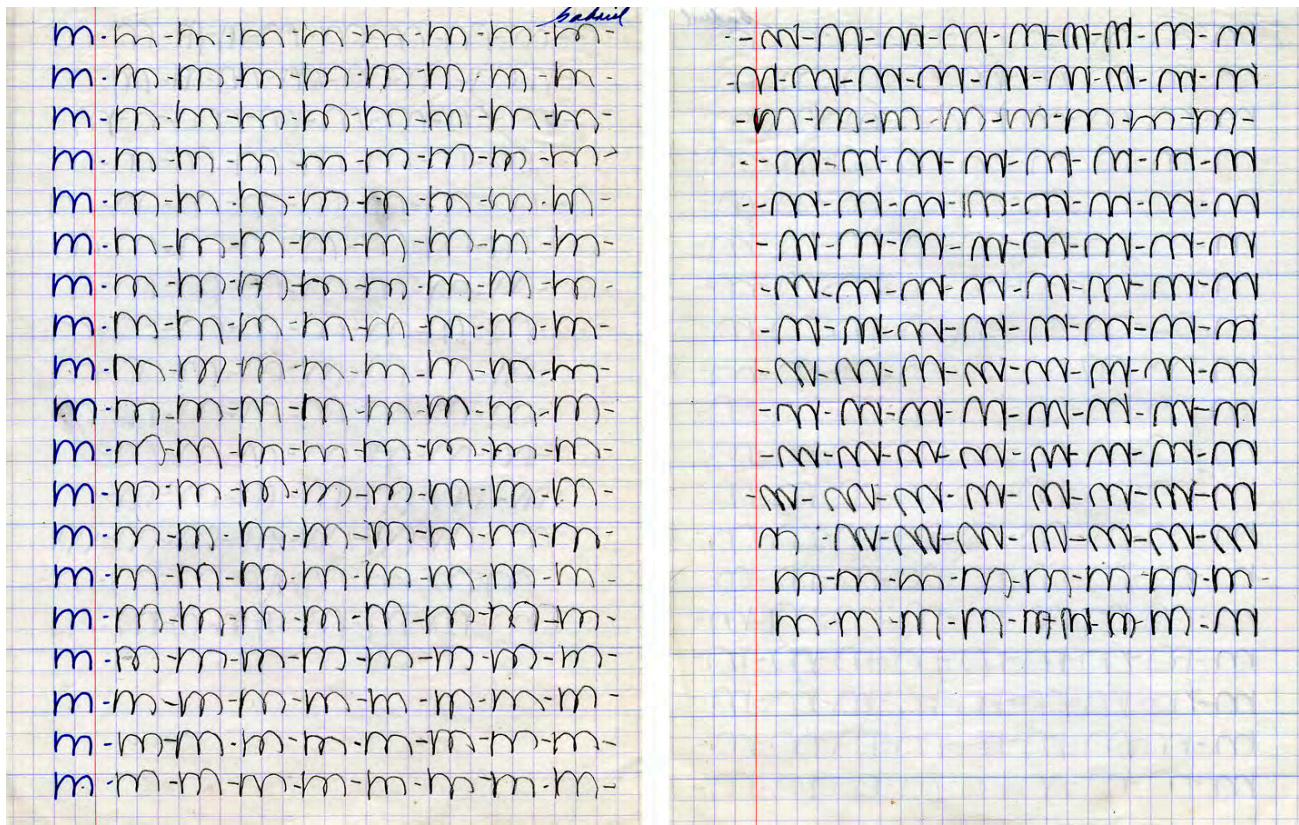 Gabriel
m - m - m - m - m - m - m - m - m -
m - m - m - m - m - m - m - m - m -
m - m - m - m - m - m - m - m - m -
m - m - m - m - m - m - m - m - m -
m - m - m - m - m - m - m - m - m -
m - m - m - m - m - m - m - m - m -
m - m - m - m - m - m - m - m - m -
m - m - m - m - m - m - m - m - m -
m - m - m - m - m - m - m - m - m -
m - m - m - m - m - m - m - m - m -
m - m - m - m - m - m - m - m - m -
m - m - m - m - m - m - m - m - m -
m - m - m - m - m - m - m - m - m -
m - m - m - m - m - m - m - m - m -
m - m - m - m - m - m - m - m - m -
m - m - m - m - m - m - m - m - m -
m - m - m - m - m - m - m - m - m -
m - m - m - m - m - m - m - m - m -
m - m - m - m - m - m - m - m - m -
- - m - m - m - m - m - m - m - m - m
- m - m - m - m - m - m - m - m - m
- m - m - m - m - m - m - m - m -
- - m - m - m - m - m - m - m - m
- - m - m - m - m - m - m - m - m
- m - m - m - m - m - m - m - m
- m - m - m - m - m - m - m - m
- m - m - m - m - m - m - m - m
- m - m - m - m - m - m - m - m
- m - m - m - m - m - m - m - m
- m - m - m - m - m - m - m - m
- m - m - m - m - m - m - m - m
m - m - m - m - m - m - m - m
m - m - m - m - m - m - m - m -
m - m - m - m - m - m - m - m - m